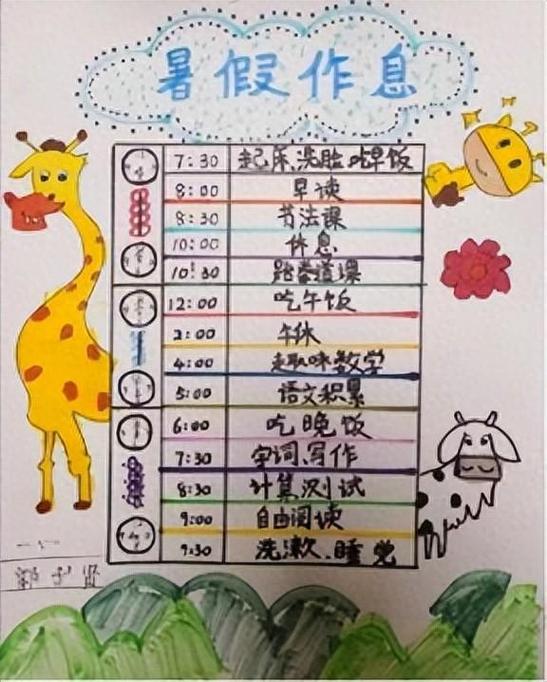 暑假作息
7:30 起床、洗脸、吃早饭
8:00 早读
8:30 书法课
10:00 休息
10:30 跆拳道课
12:00 吃午饭
2:00 午休
4:00 趣味数学
5:00 语文积累
6:00 吃晚饭
7:30 字词、写作
8:30 计算测试
9:00 自由阅读
9:30 洗漱、睡觉